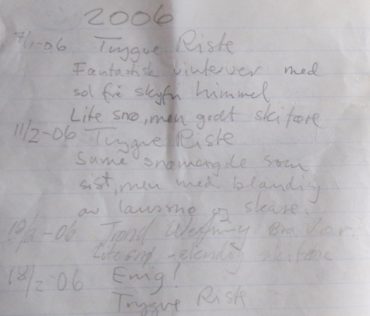 2006
7/1-06 Trygve Riste
Fantastisk vintervær med
sol frå skyfri himmel
Lite snø, men godt skiføre
11/2-06 Trygve Riste
Same snømengde som
sist, men med blanding
av laussnø og skare.
12/2-06 Trond
Lite snø elendig skiføre
18/2-06 Enig!
Trygve Riste